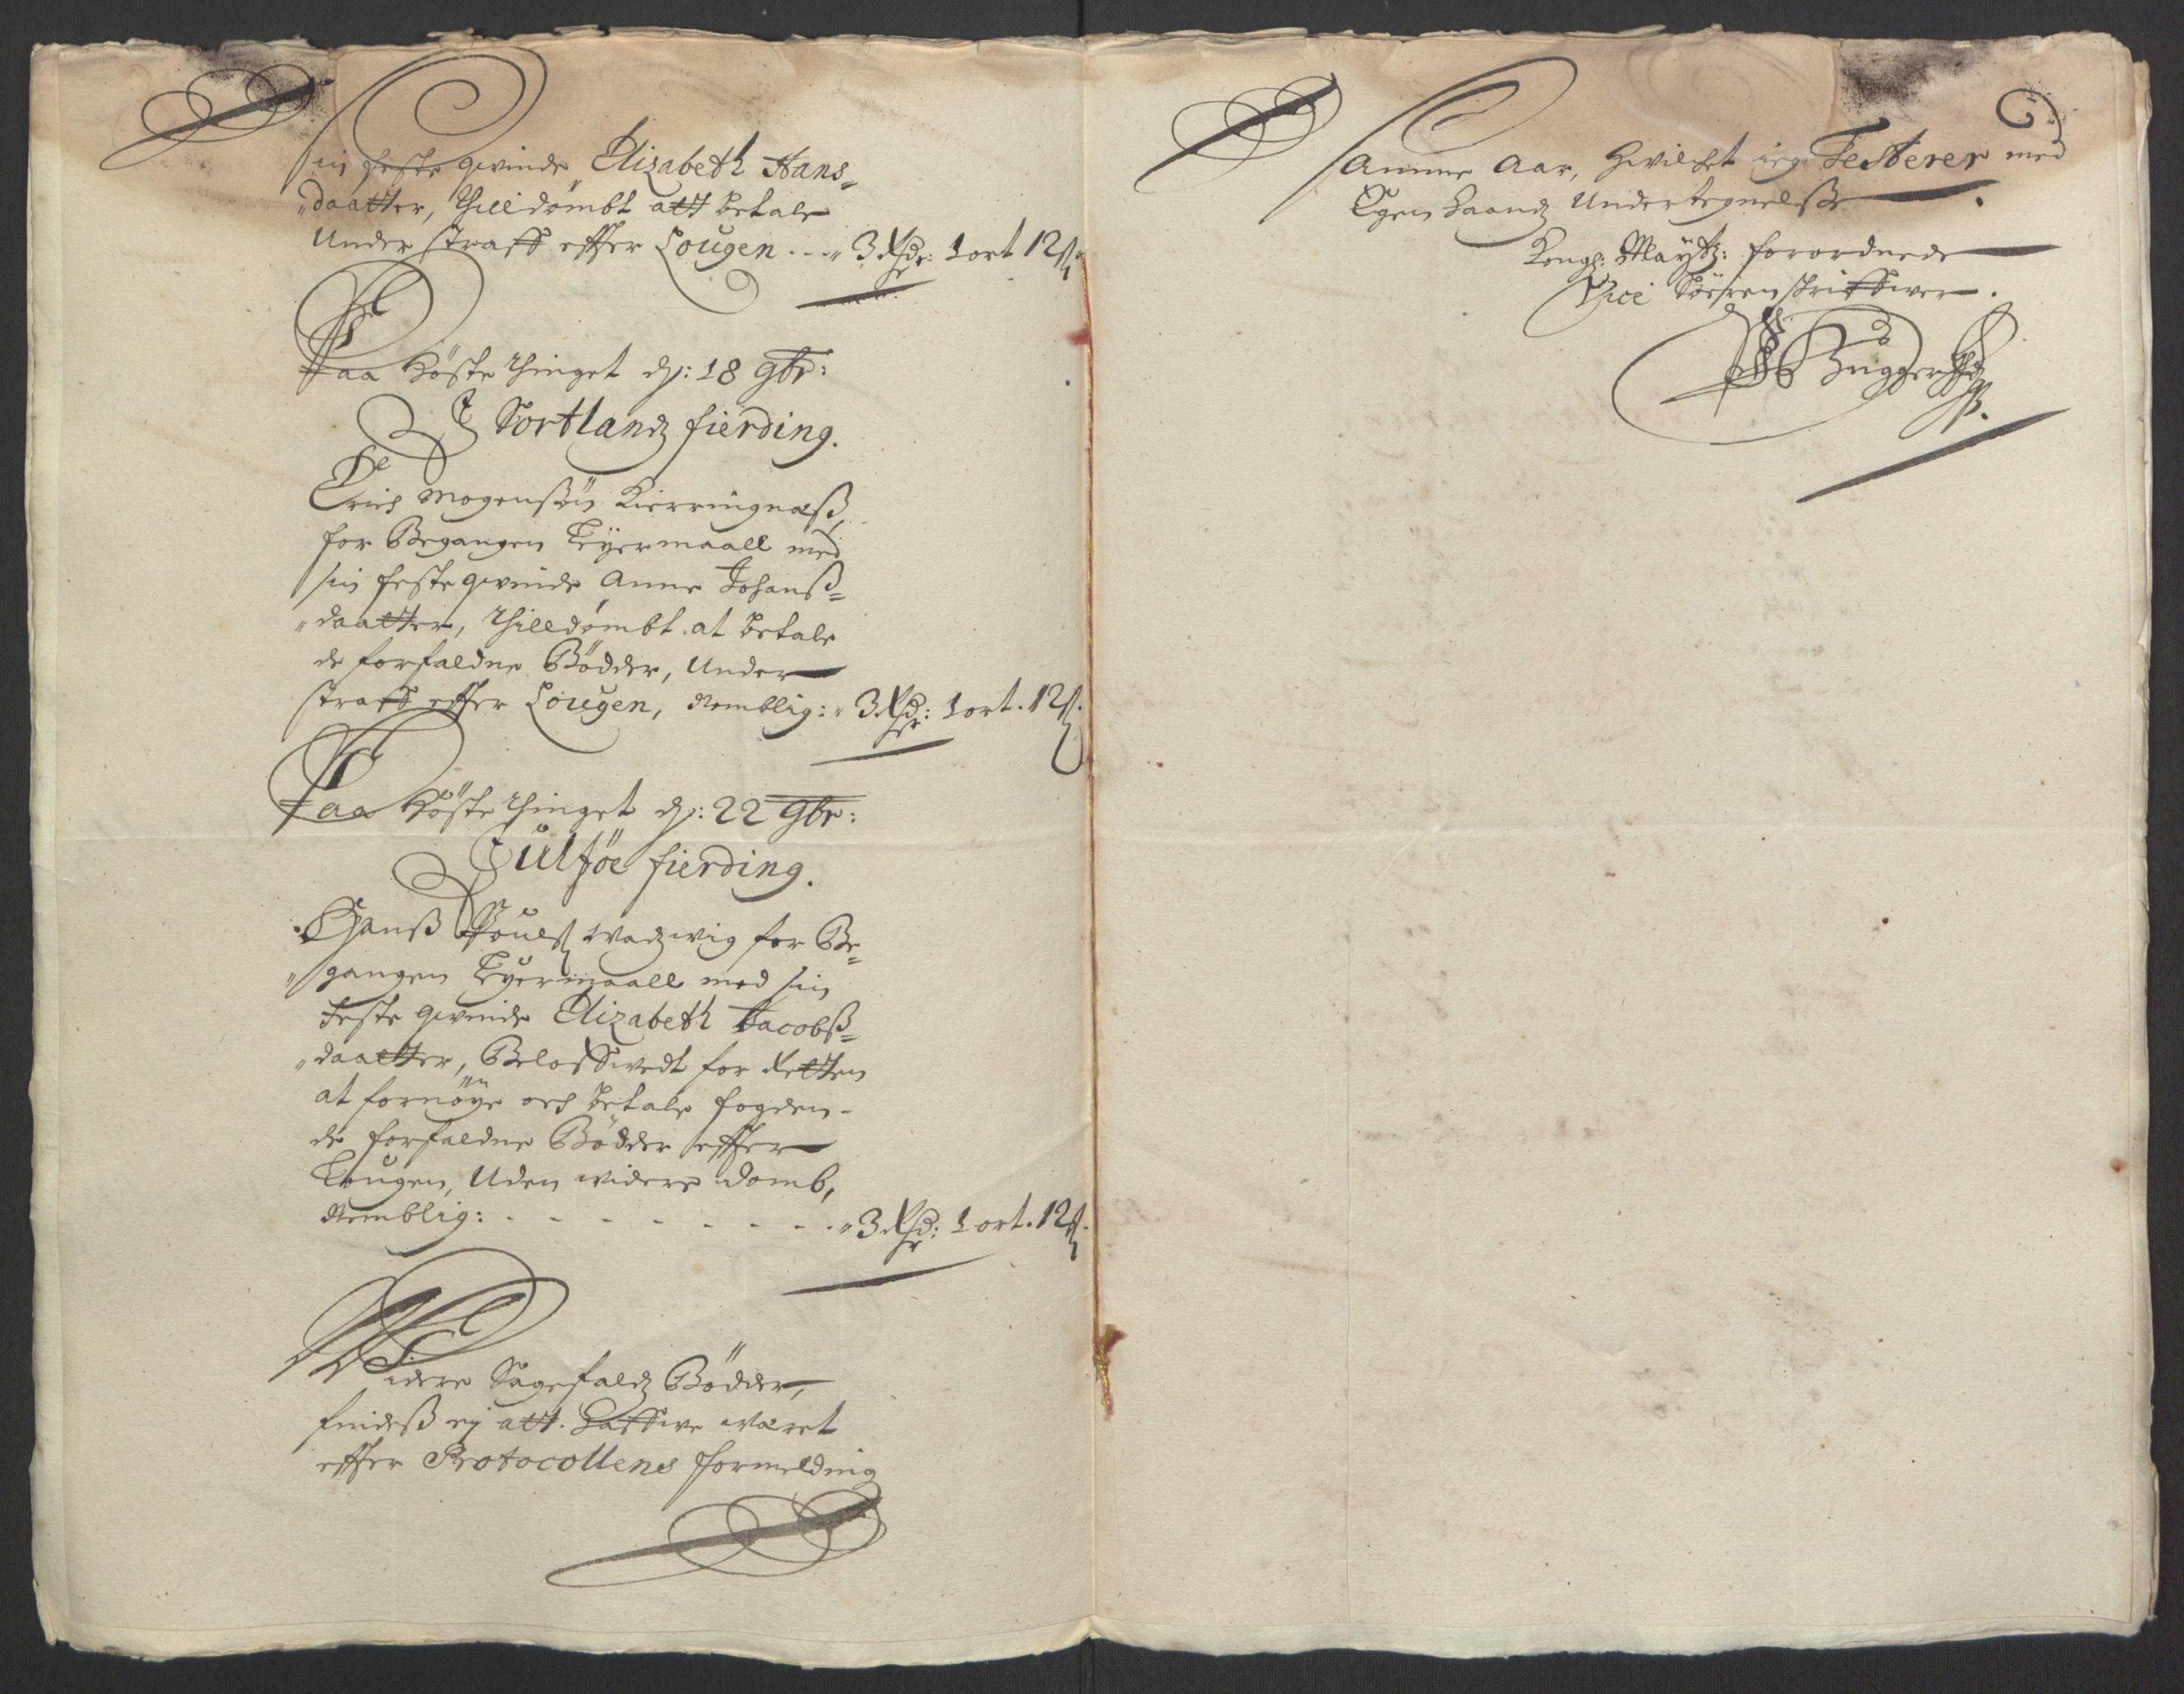 sin feste qvinde Elizabeth Hans-
daatter, thilldømbt att betale
Under straff effter Lougen --- 3 Rdr: 1 ort 12 ß
Paa Høste thinget d: 18 9br:
I Sortlandz fierding.
Erich Mogenßøn Kierringnæß,
for Begangen Leyermaall med
sin feste qvinde Anne Johanß-
daatter, thilldømbt at betale
de forfaldne Bødder, Under
straff effter Lougen, Nemblig: 3 Rdr: 1 ort. 12 ß.
Paa Høste thinget d: 22 9br:
I ülföe fierding.
Hanß Pouls: Wadzwig for Be-
gangen Leyermaall med sin
feste qvinde Elizabeth Jacobß-
daatter, Beloffwedt for Retten
at fornøye och betale fogden
de forfaldne Bødder effter
Lougen, Uden widere domb,
Nemblig: - - - - - - - - 3 Rdr: 1 ort. 12 ß.
Widere Sagefaldz Bødder,
findeß ej att haffwe wæret
effter Protocollens formelding
Samme Aar, hvilchet ieg Testerer med
Egen haandz Undertegnelße
Kongl: Maytz: forordnede
Vice Sörenschriffwer.